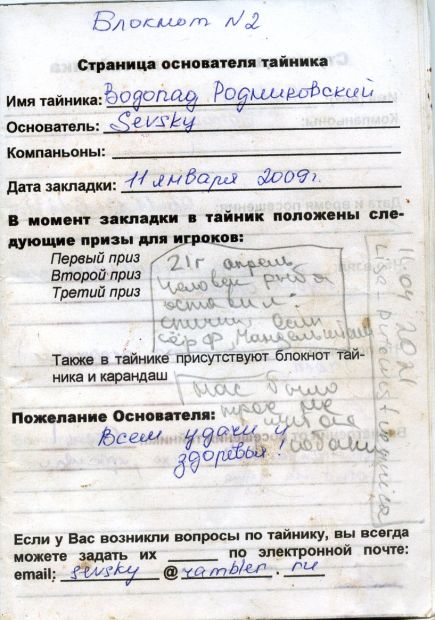 Блокнот №2
Страница основателя тайника
Имя тайника: Водопад Родниковский
Основатель: Sevsky
Компаньоны:
Дата закладки: 11 января 2009г.
В момент закладки в тайник положены сле-
дующие призы для игроков:
Первый приз
Второй приз
Третий приз
21г апрель
человек рыба
оставил:
спички, если
Также в тайнике присутствуют блокнот тай-
ника и карандаш
нас было
трое
Пожелание Основателя:
Всем удачи и
здоровья!
Если у Вас возникли вопросы по тайнику, вы всегда
можете задать их ______ по электронной почте:
email: sevsky @ rambler . ru
11.04.2021